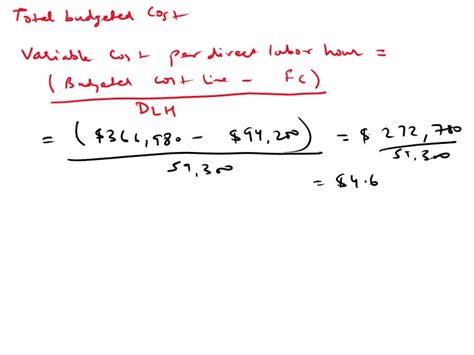 Total budgeted cost
Variable cost per direct labor hour =
(Budgeted cost line - FC)
DLH
= ($366,980 - $94,200) = $ 272,780
59,300 59,300
= $4.6